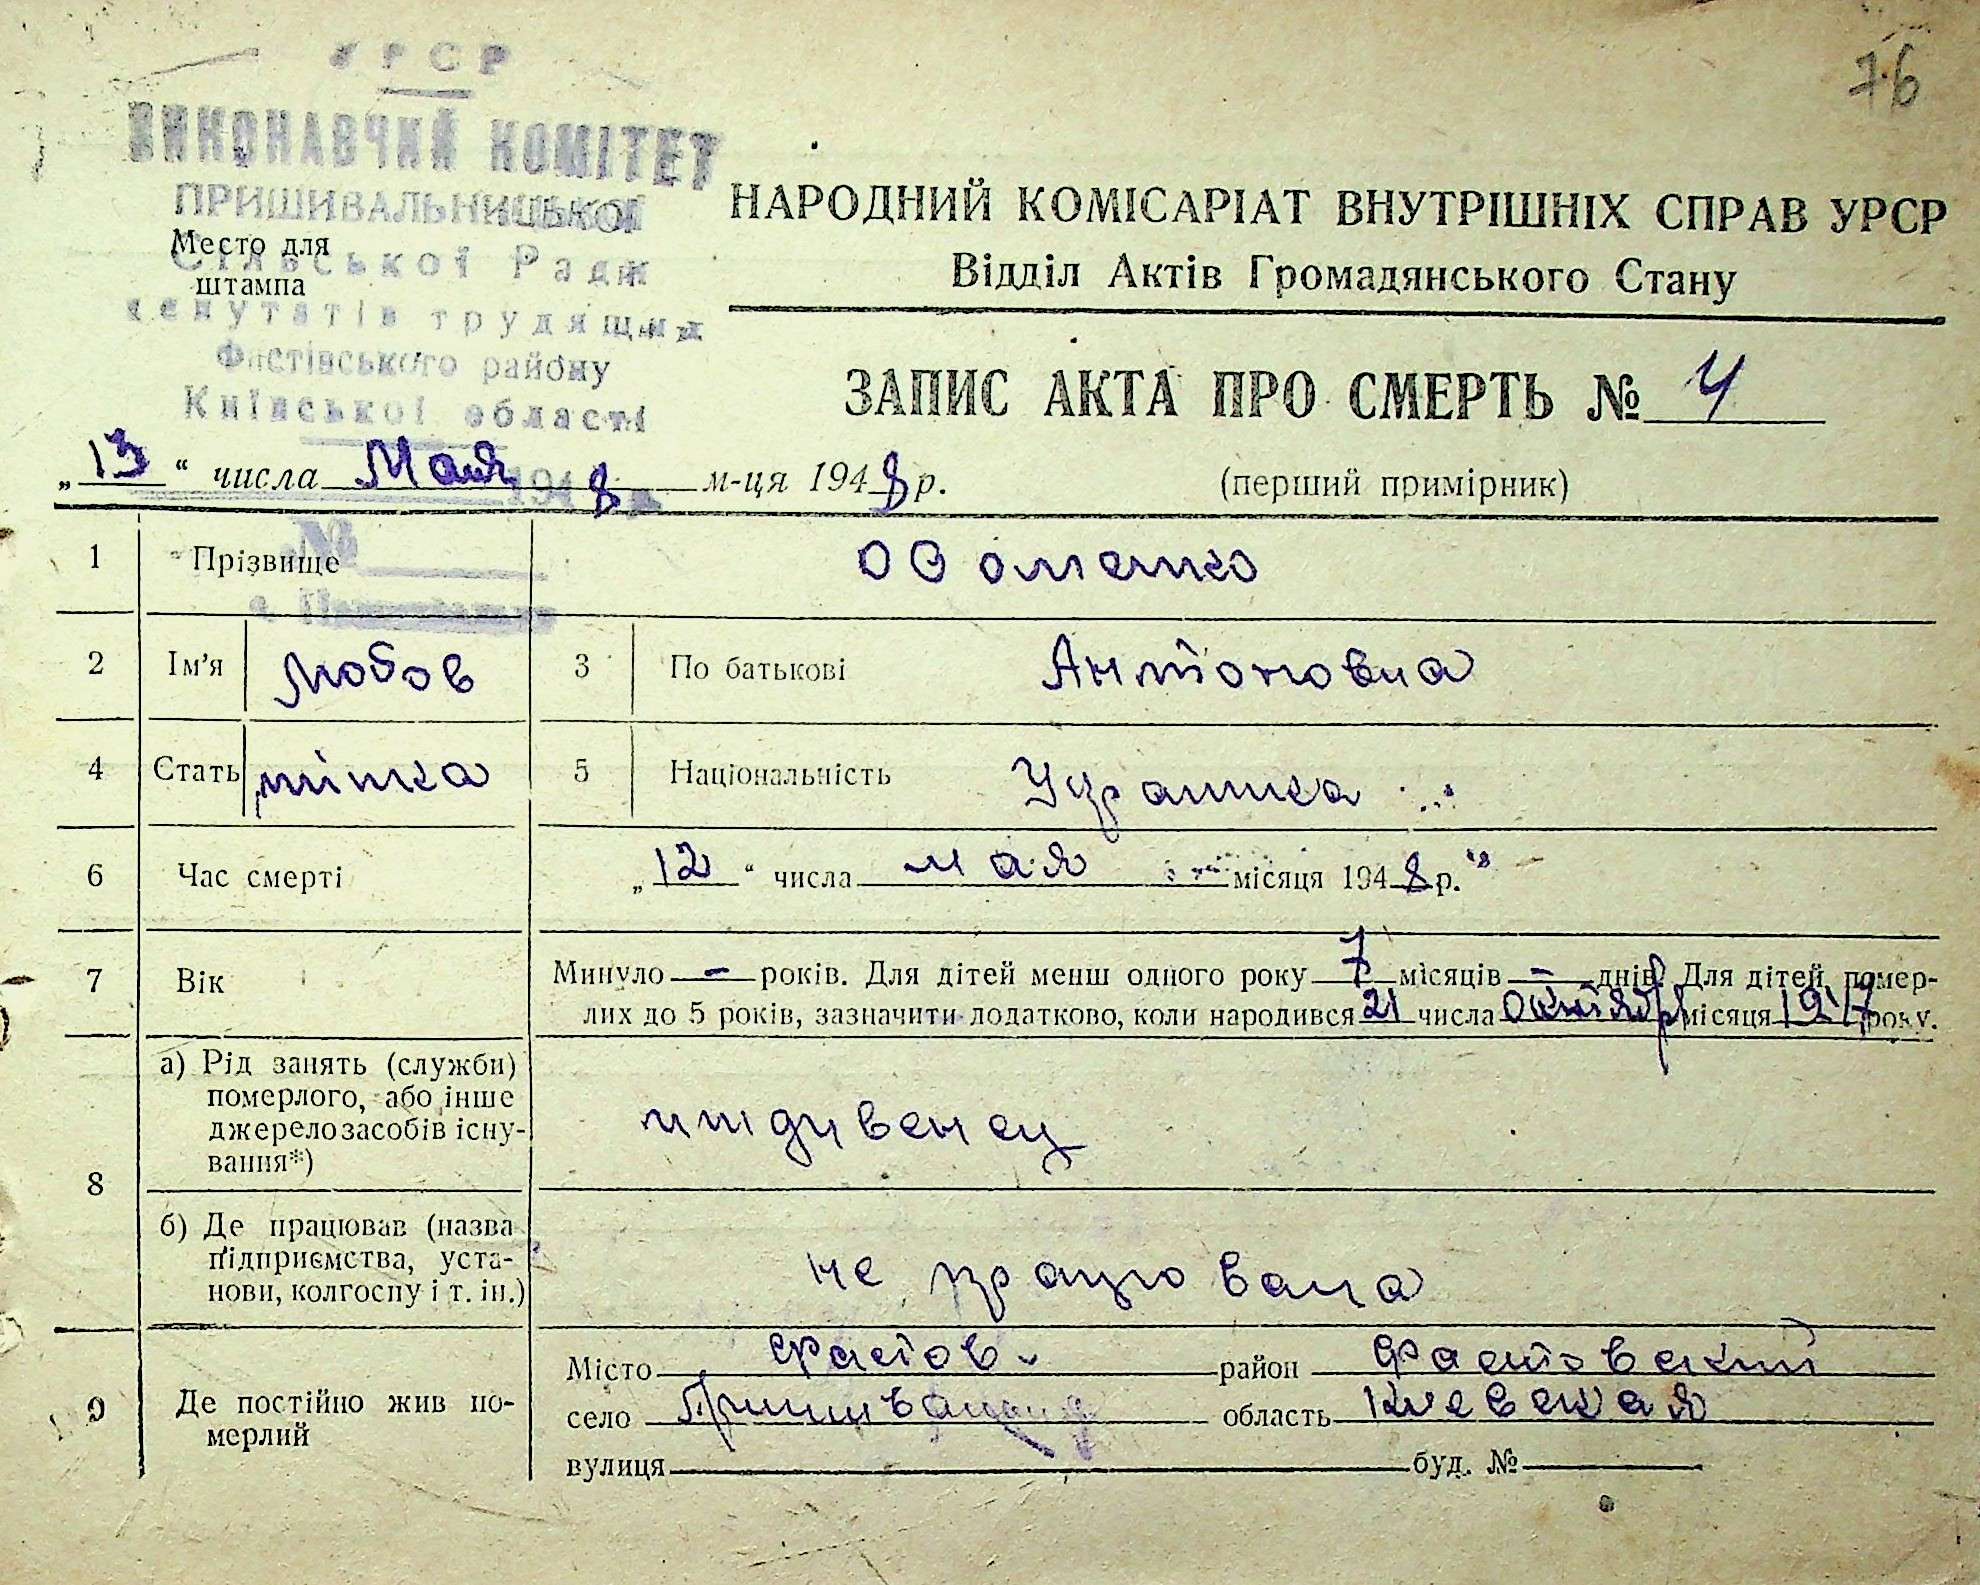 УРСР
76
ВИКОНАВЧИЙ КОМІТЕТ
ПРИШИВАЛЬНИЦЬКОЇ
Сільської Ради
депутатів трудящих
Фастівського району
Київської області
194 8 р.
№
с.
Место для
штампа
НАРОДНИЙ КОМІСАРІАТ ВНУТРІШНІХ СПРАВ УРСР
Відділ Актів Громадянського Стану
ЗАПИС АКТА ПРО СМЕРТЬ № 4
„13“ числа Мая м-ця 1948 р.
(перший примірник)
1 Прізвище
2 Ім'я Любов 3 По батькові Антоновна
4 Стать жінка 5 Національність Українка
6 Час смерті „12“ числа мая місяця 1948 р.
7 Вік Минуло – років. Для дітей менш одного року 7 місяців – днів. Для дітей, помер-
лих до 5 років, зазначити додатково, коли народився 21 числа октября місяця 1947 року.
8 а) Рід занять (служби)
померлого, або інше
джерело засобів існу-
вання*)
иждивенец
б) Де працював (назва
підприємства, уста-
нови, колгоспу і т. ін.)
не працювала
9 Де постійно жив по-
мерлий
Місто Фастов район Фастовский
село область Киевская
вулиця буд. №